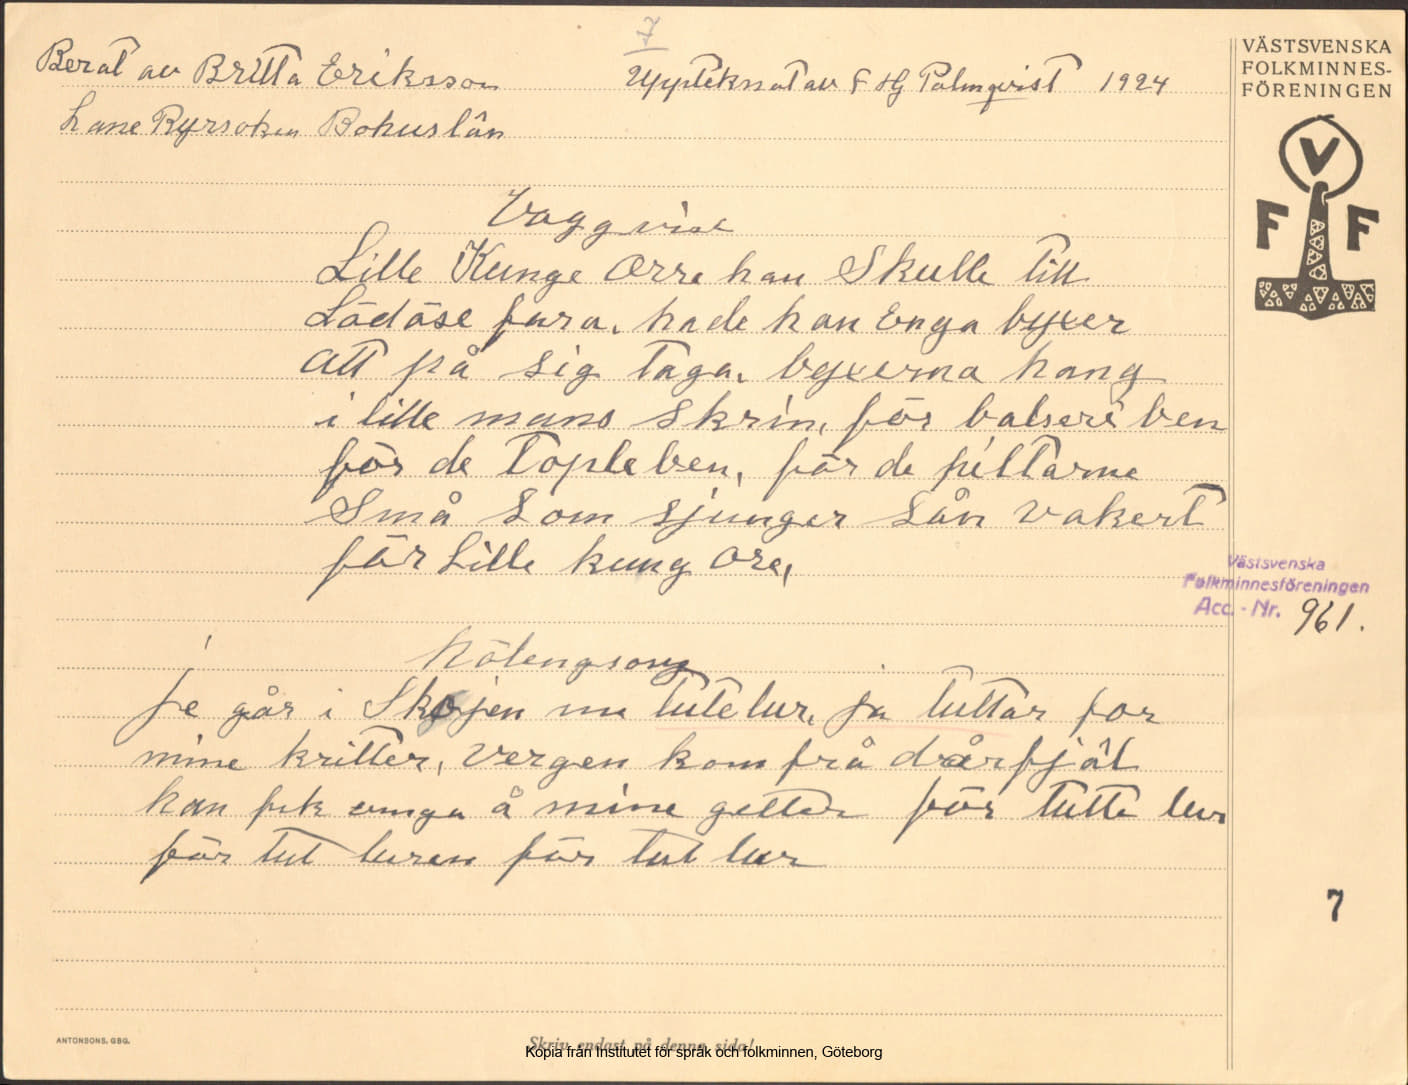 7
Berat av Britta Eriksson Uppteknat av F Hj Palmqvist 1924
Lane Ryrsoken Bohuslän
Vaggvisa
Lille Kunge Orre han Skulle till
Lödöse fara, hade han Enga byxer
att på sig taga, byxerna hang
i lille mans skrin, för balseri ben
för de Topleben, för de piltarne
Små som sjunger sån vakert
för Lille kung Ore,
Kölengsong
je går i Skojen me tutelur, ja tuttar for
mine kritter, Vergen kom frå dårfjäl
han fek enga å mine getter för tutte lur
för tut luren för tut lur
VÄSTSVENSKA
FOLKMINNES-
FÖRENINGEN
V
F F
Västsvenska
Folkminnesföreningen
Acc.-Nr. 961.
7
ANTONSONS, GBG.
Skriv endast på denna sida!
Kopia från Institutet för språk och folkminnen, Göteborg